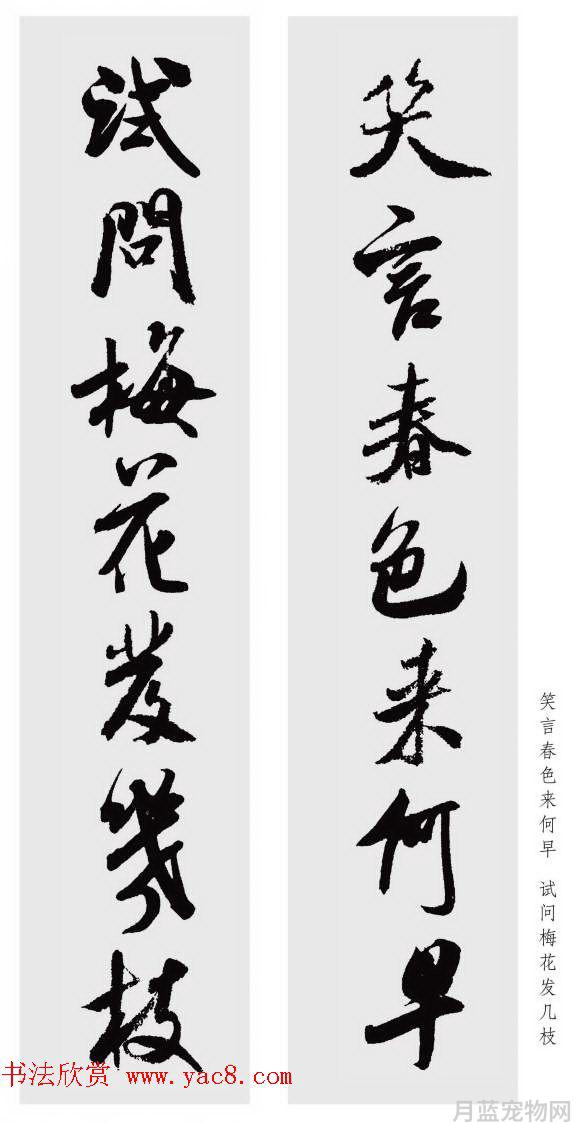 笑言春色来何早
試問梅花發幾枝
笑言春色来何早 试问梅花发几枝
书法欣赏 www.yac8.com
月蓝宠物网